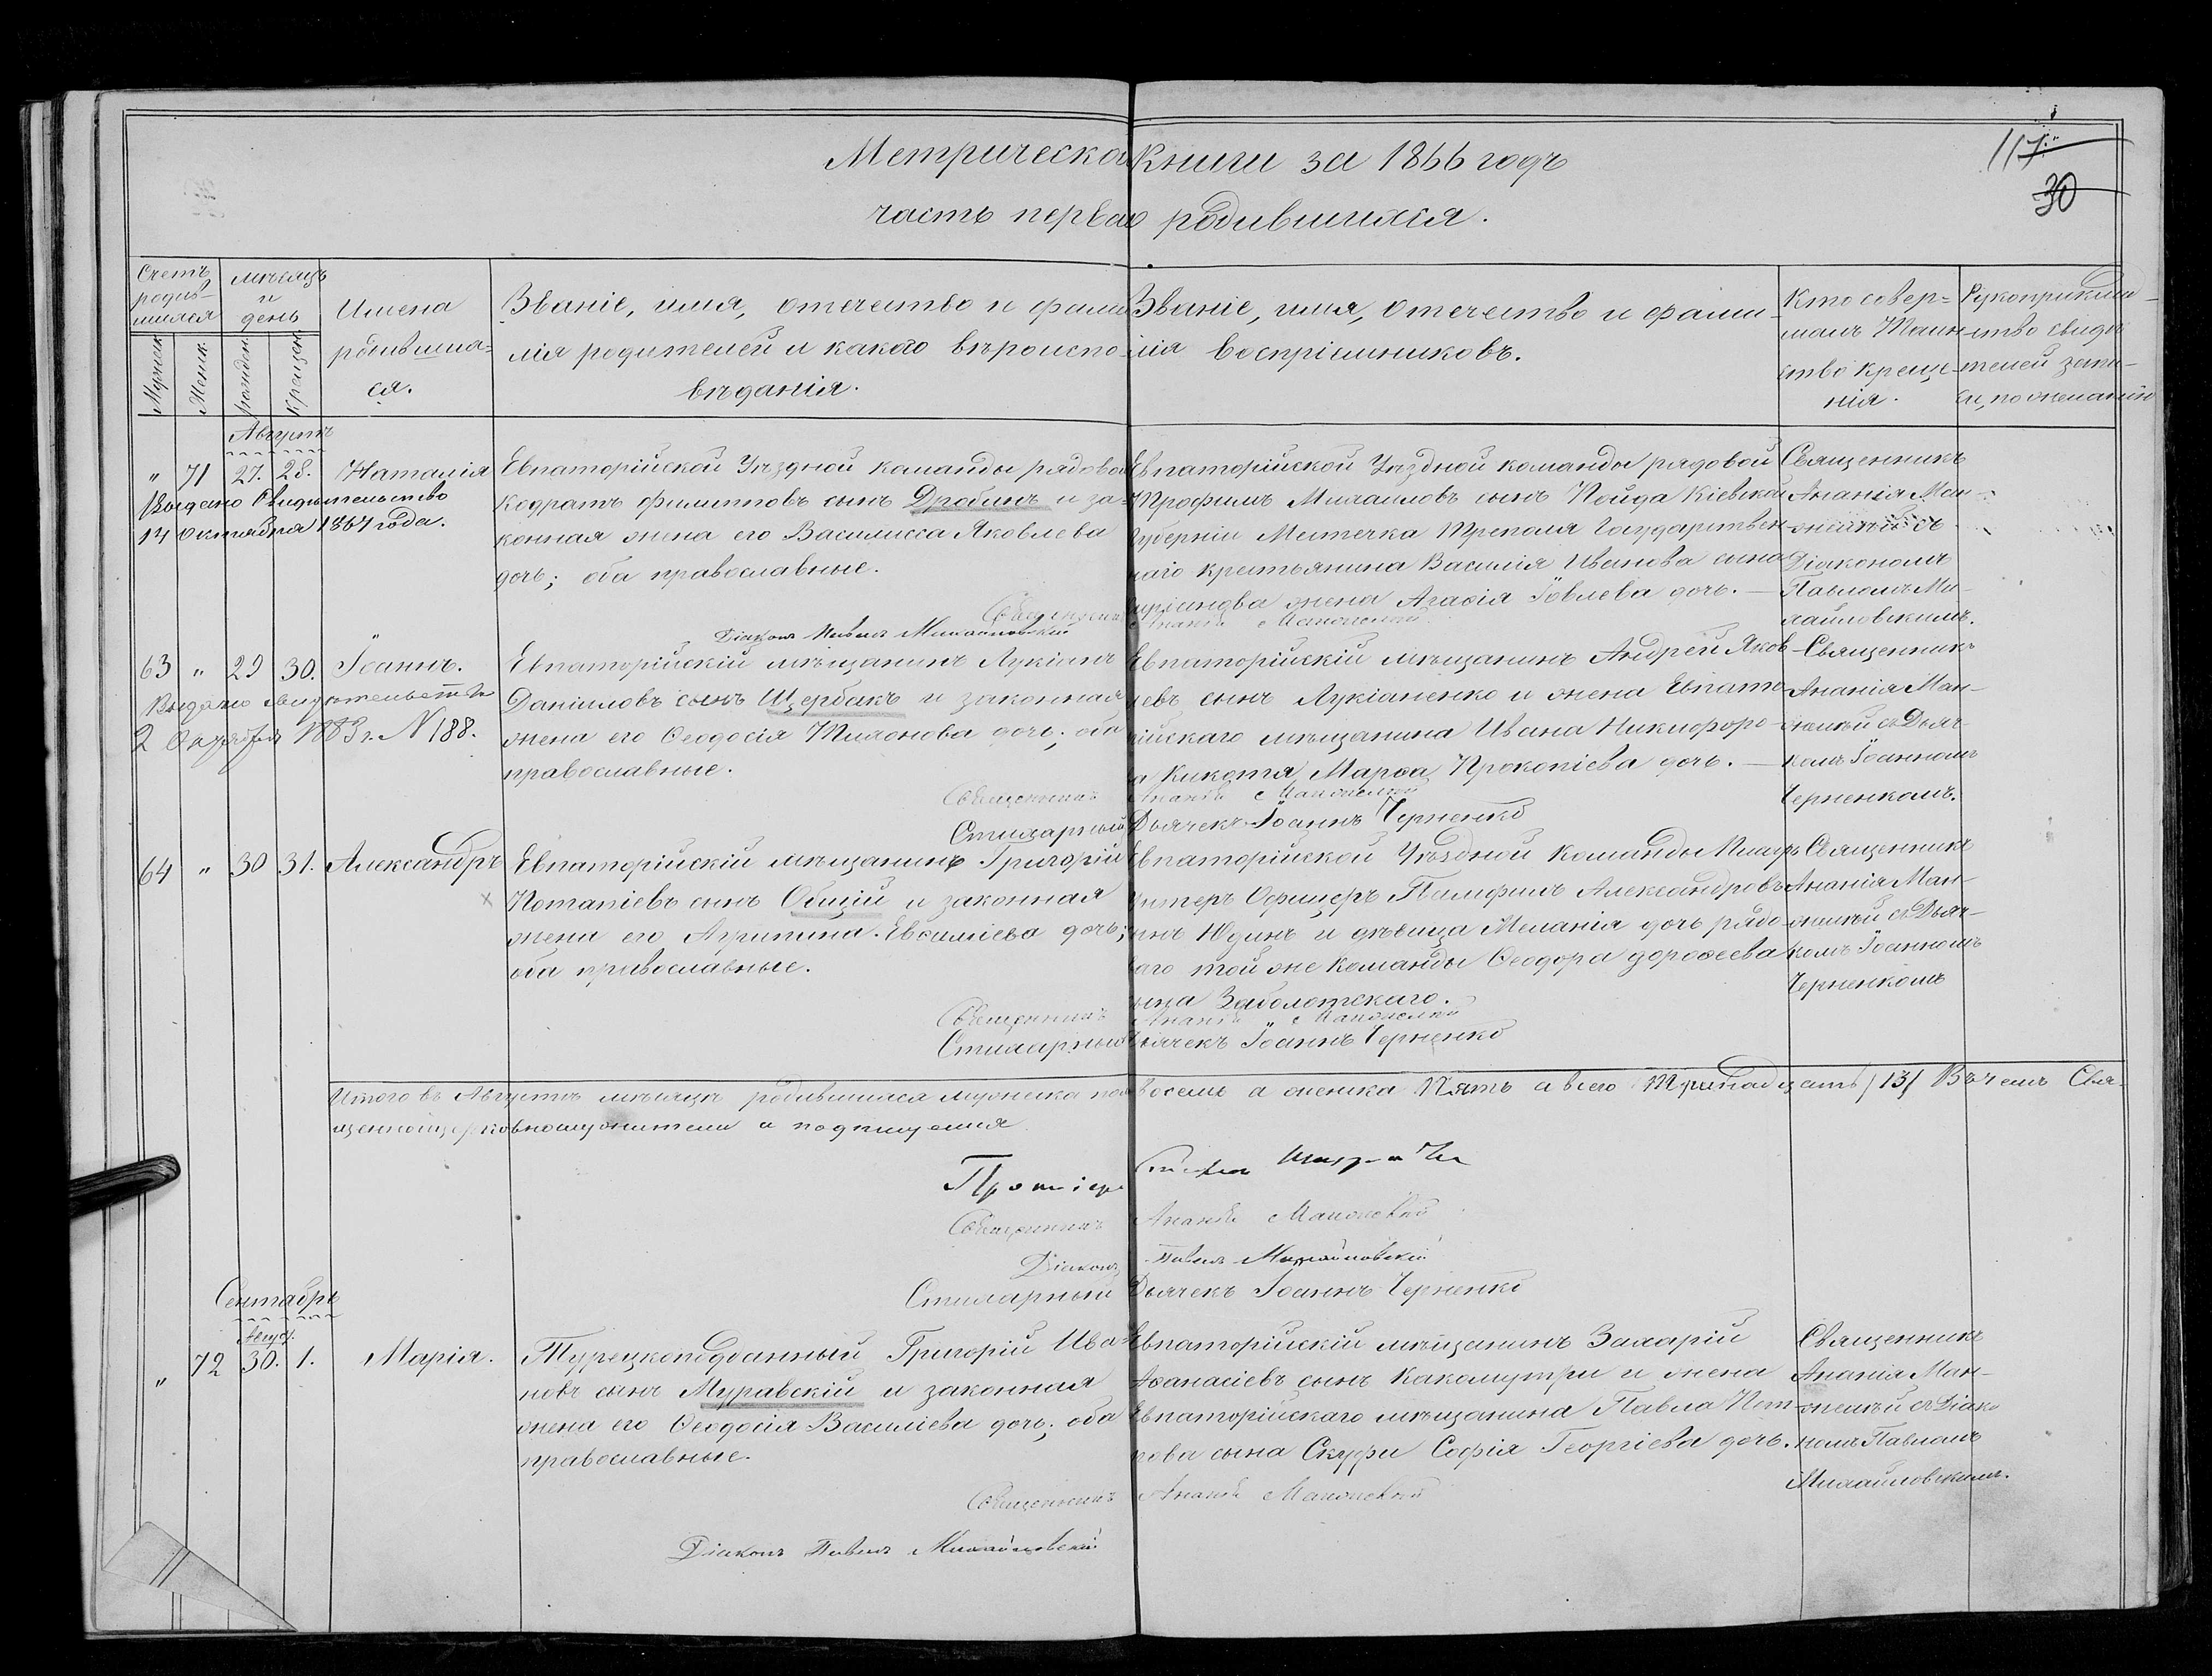 Метрическая книги за 1866 годъ
часть первая родившихся.
117
30
Счетъ родив-шихся
мѣсяцъ и день
Мужеск.
Женск.
рожден.
крещен.
Имена родивших-ся.
Званіе, имя, отечество и фами-
лія родителей и какого вѣроиспо-
вѣданія.
Званіе, имя, отечество и фами-
лія воспріемниковъ.
Кто совер-
шалъ Таин-
ство креще-
нія.
Рукоприклад-
ство свидѣ-
телей запи-
си, по желанію
Августъ
" 71 27. 28. Наталія
Выдано Свидѣтельство
14 Октября 1867 года.
Евпаторійской Уѣздной команды рядовой
Кодратъ Филипповъ сынъ Дробинъ и за-
конная жена его Василисса Яковлева
дочь; оба православные.
Евпаторійской Уѣздной команды рядовой
Трофимъ Михаиловъ сынъ Пойда Кіевской
Губерніи Местечка Треполя Государствен-
наго крестьянина Василія Иванова сына
жена Агафія Іовлева дочь.
Священникъ
Ананія Ман-
желѣй съ
Діакономъ
Павломъ Ми-
хайловскимъ.
Священникъ Ананія
Діаконъ Павелъ Михайловскій
63 " 29 30. Іоаннъ.
Выдано свидѣтельство
2 Октября 1883 г. N 188.
Евпаторійскій мѣщанинъ Лукіанъ
Даніиловъ сынъ Щербакъ и законная
жена его Ѳеодосія Тихонова дочь; оба
православные.
Евпаторійскій мѣщанинъ Андрей Яков-
левъ сынъ Лукіаненко и жена Евпато-
рійскаго мѣщанина Ивана Никифоро-
ва Кикотя, Марѳа Прокопіева дочь.
Священникъ
Ананія Ман-
желѣй съ Дьяч-
комъ Іоанномъ
Черненкомъ.
Священникъ Ананія
Стихарный Дьячекъ Іоаннъ Черненко
64 " 30 31. Александръ
Евпаторійскій мѣщанинъ Григорій
Потапіевъ сынъ Общій и законная
жена его Агрипина Евсиміева дочь;
оба православные.
Евпаторійской Уѣздной команды
Унтеръ Офицеръ Памфилъ Александровъ
сынъ Юдинъ и дѣвица Меланія дочь рядо-
ваго той же команды Ѳеодора Дороѳеева
сына Заболотскаго.
Священникъ
Ананія Ман-
желѣй съ Дьяч-
комъ Іоанномъ
Черненкомъ
Священникъ Ананія
Стихарный Дьячекъ Іоаннъ Черненко
Итого въ Августѣ мѣсяцѣ родившихся мужеска пола восемь а женска Пять а всего Тринадцать /13/ Въ чемъ Свя-
щенноцерковнослужители и подпишемся
Протоіерей
Священникъ Ананія
Діаконъ Павелъ Михайловскій
Стихарный Дьячекъ Іоаннъ Черненко
Сентябрь
Авгус.
" 72 30. 1. Марія.
Турецкоподданный Григорій Ива-
новъ сынъ Муравскій и законная
жена его Ѳеодосія Василіева дочь; оба
православные.
Евпаторійскій мѣщанинъ Захарій
Аѳанасіевъ сынъ и жена
Евпаторійскаго мѣщанина Павла Пет-
рова сына Скуфи Софія Георгіева дочь.
Священникъ
Ананія Ман-
желѣй съ Діако-
номъ Павломъ
Михайловскимъ.
Священникъ Ананія
Діаконъ Павелъ Михайловскій